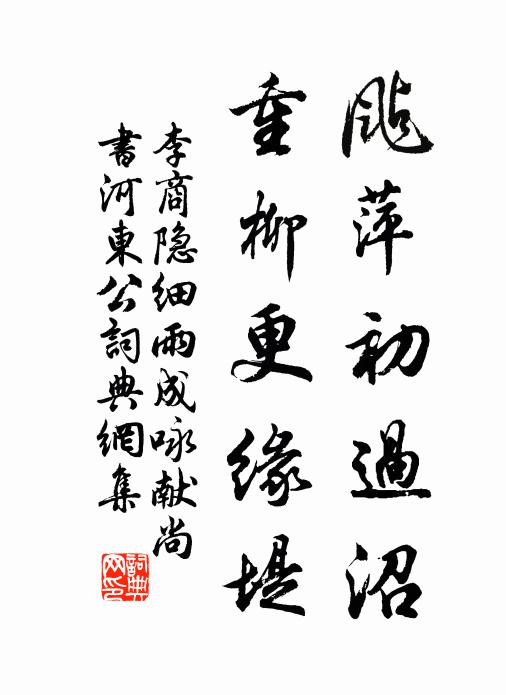 颭萍初過沼
重柳更緣堤
李商隐細雨成咏献尚
書河東公詞典網集
詞典
网印